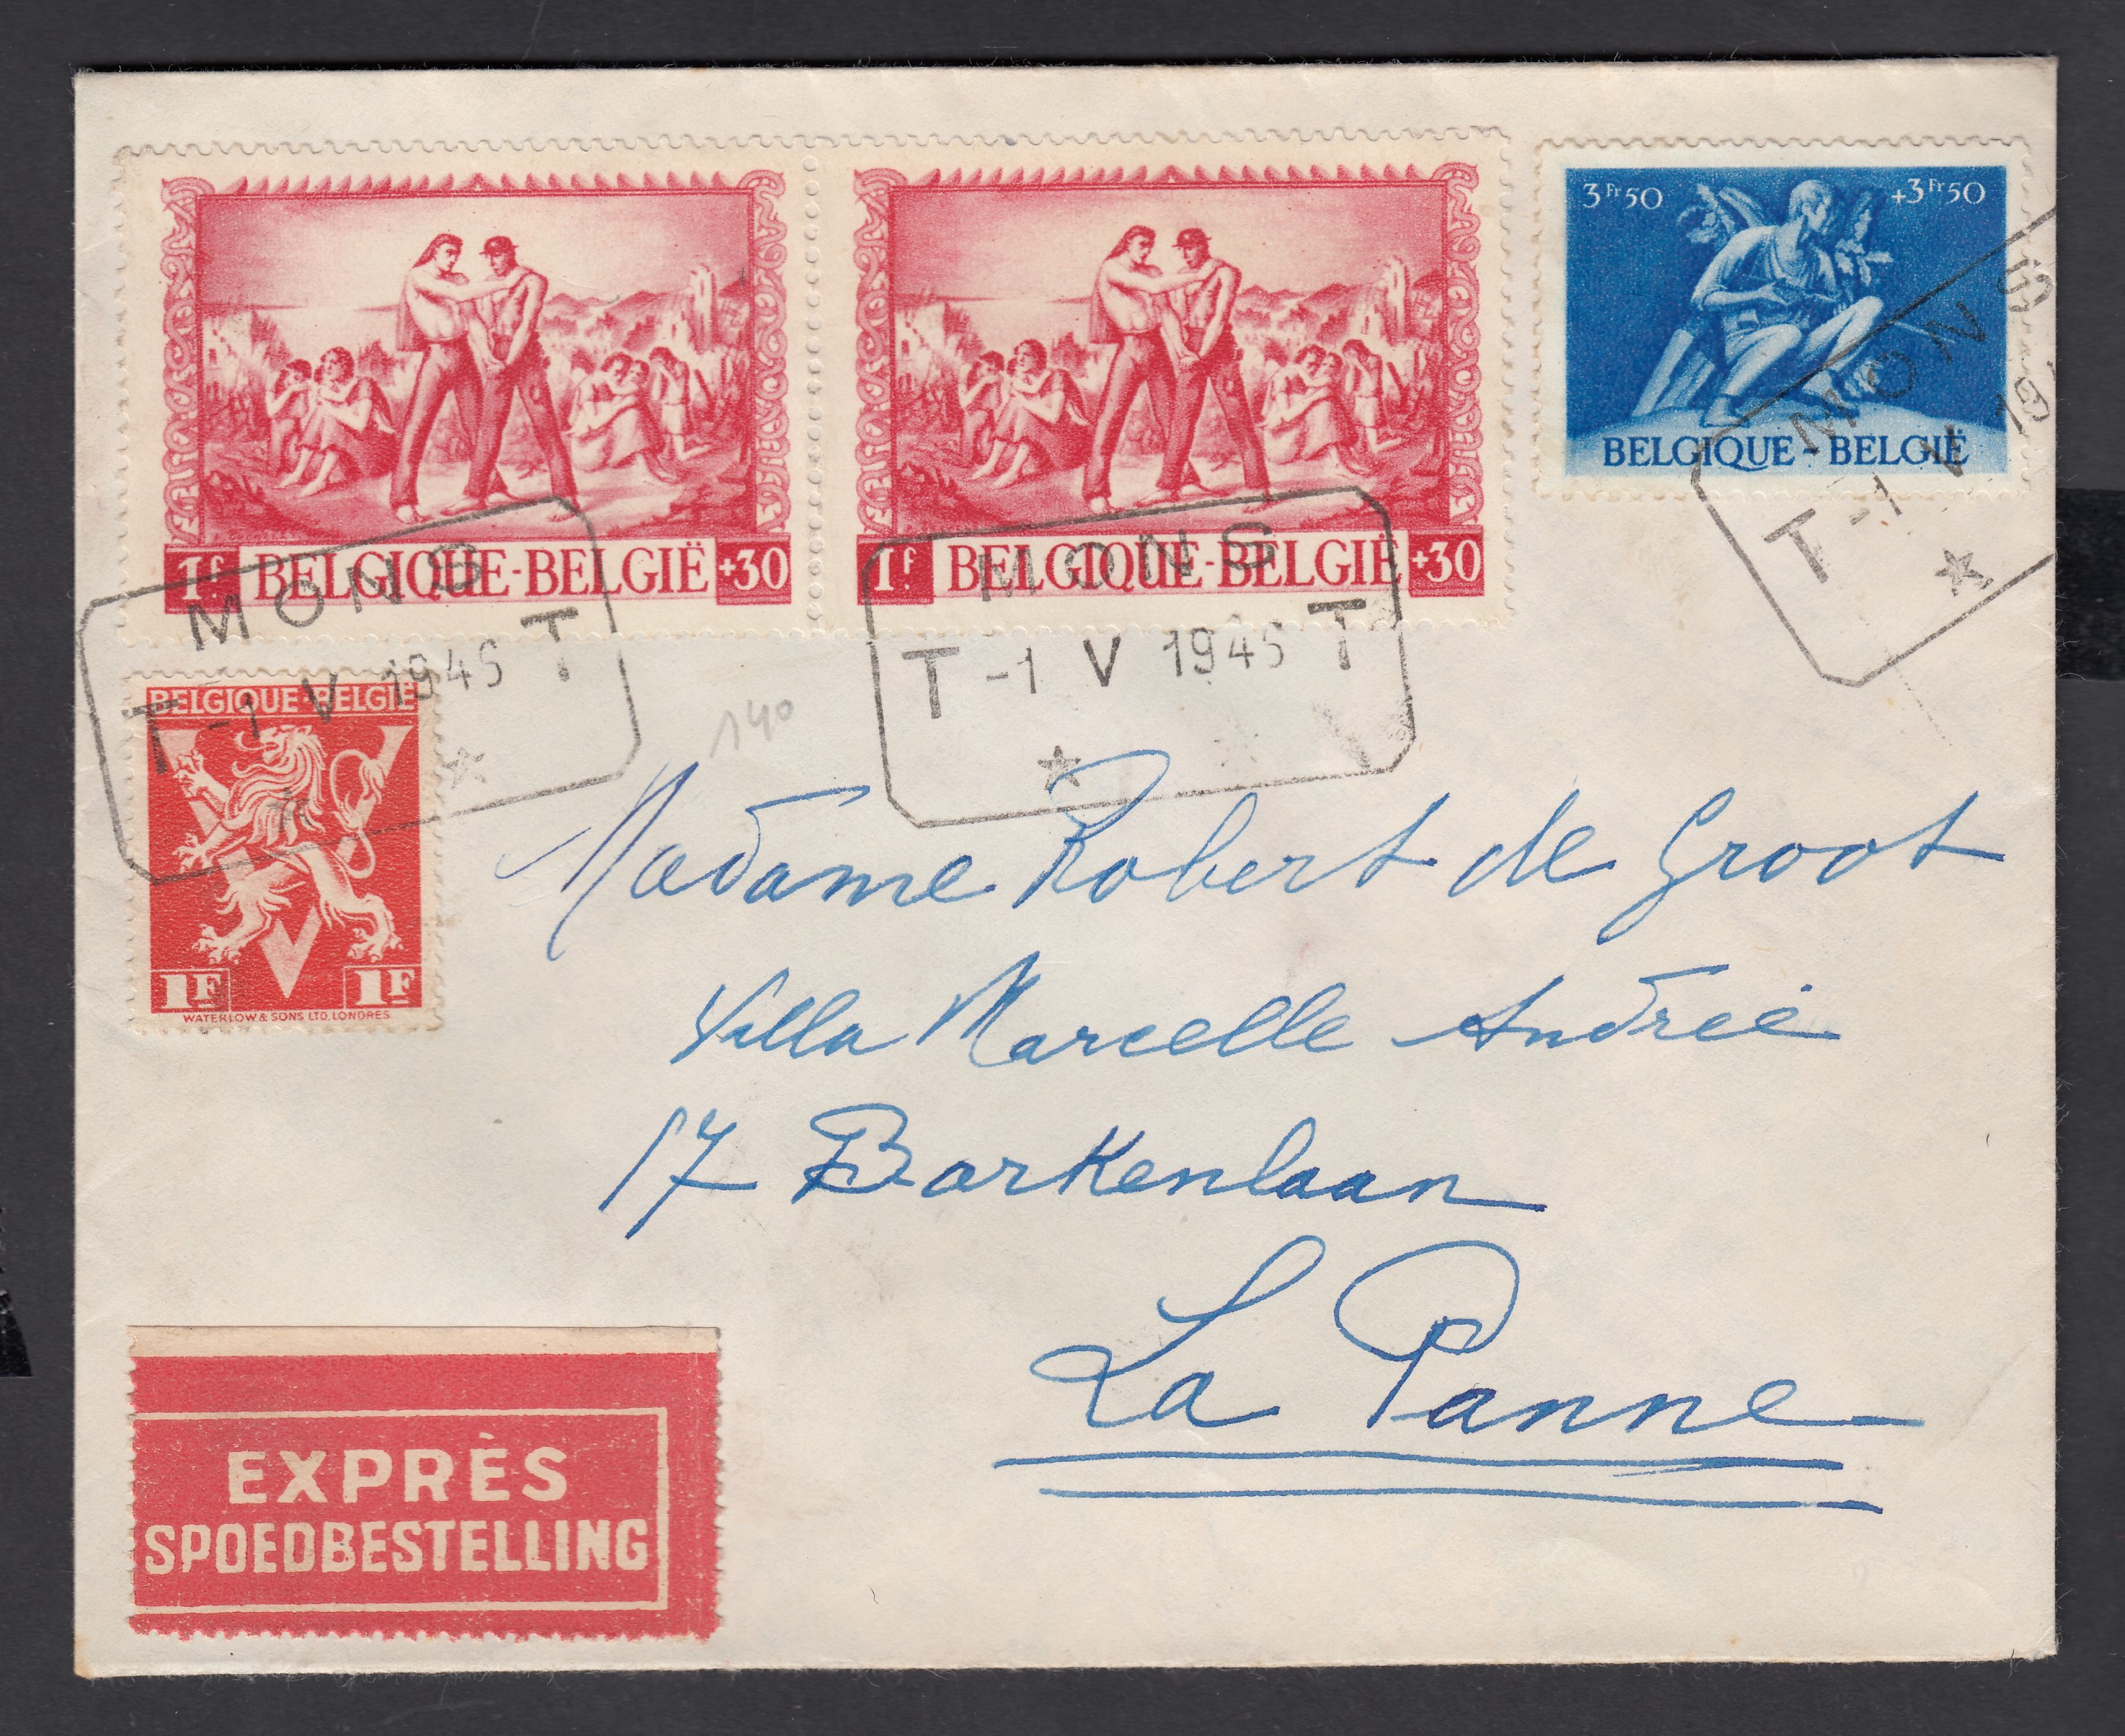 3Fr50 +3Fr50
BELGIQUE-BELGIË
1F BELGIQUE-BELGIË +30
1F BELGIQUE-BELGIË +30
MONS
T -1 V 1945 T
MONS
T -1 V 1945 T
MONS
T -1 V 19
BELGIQUE-BELGIË
1F 1F
WATERLOW & SONS LTD, LONDRES
140
Madame Robert de Groot
Villa Marcelle Andrée
17 Barkenlaan
La Panne
EXPRÈS
SPOEDBESTELLING